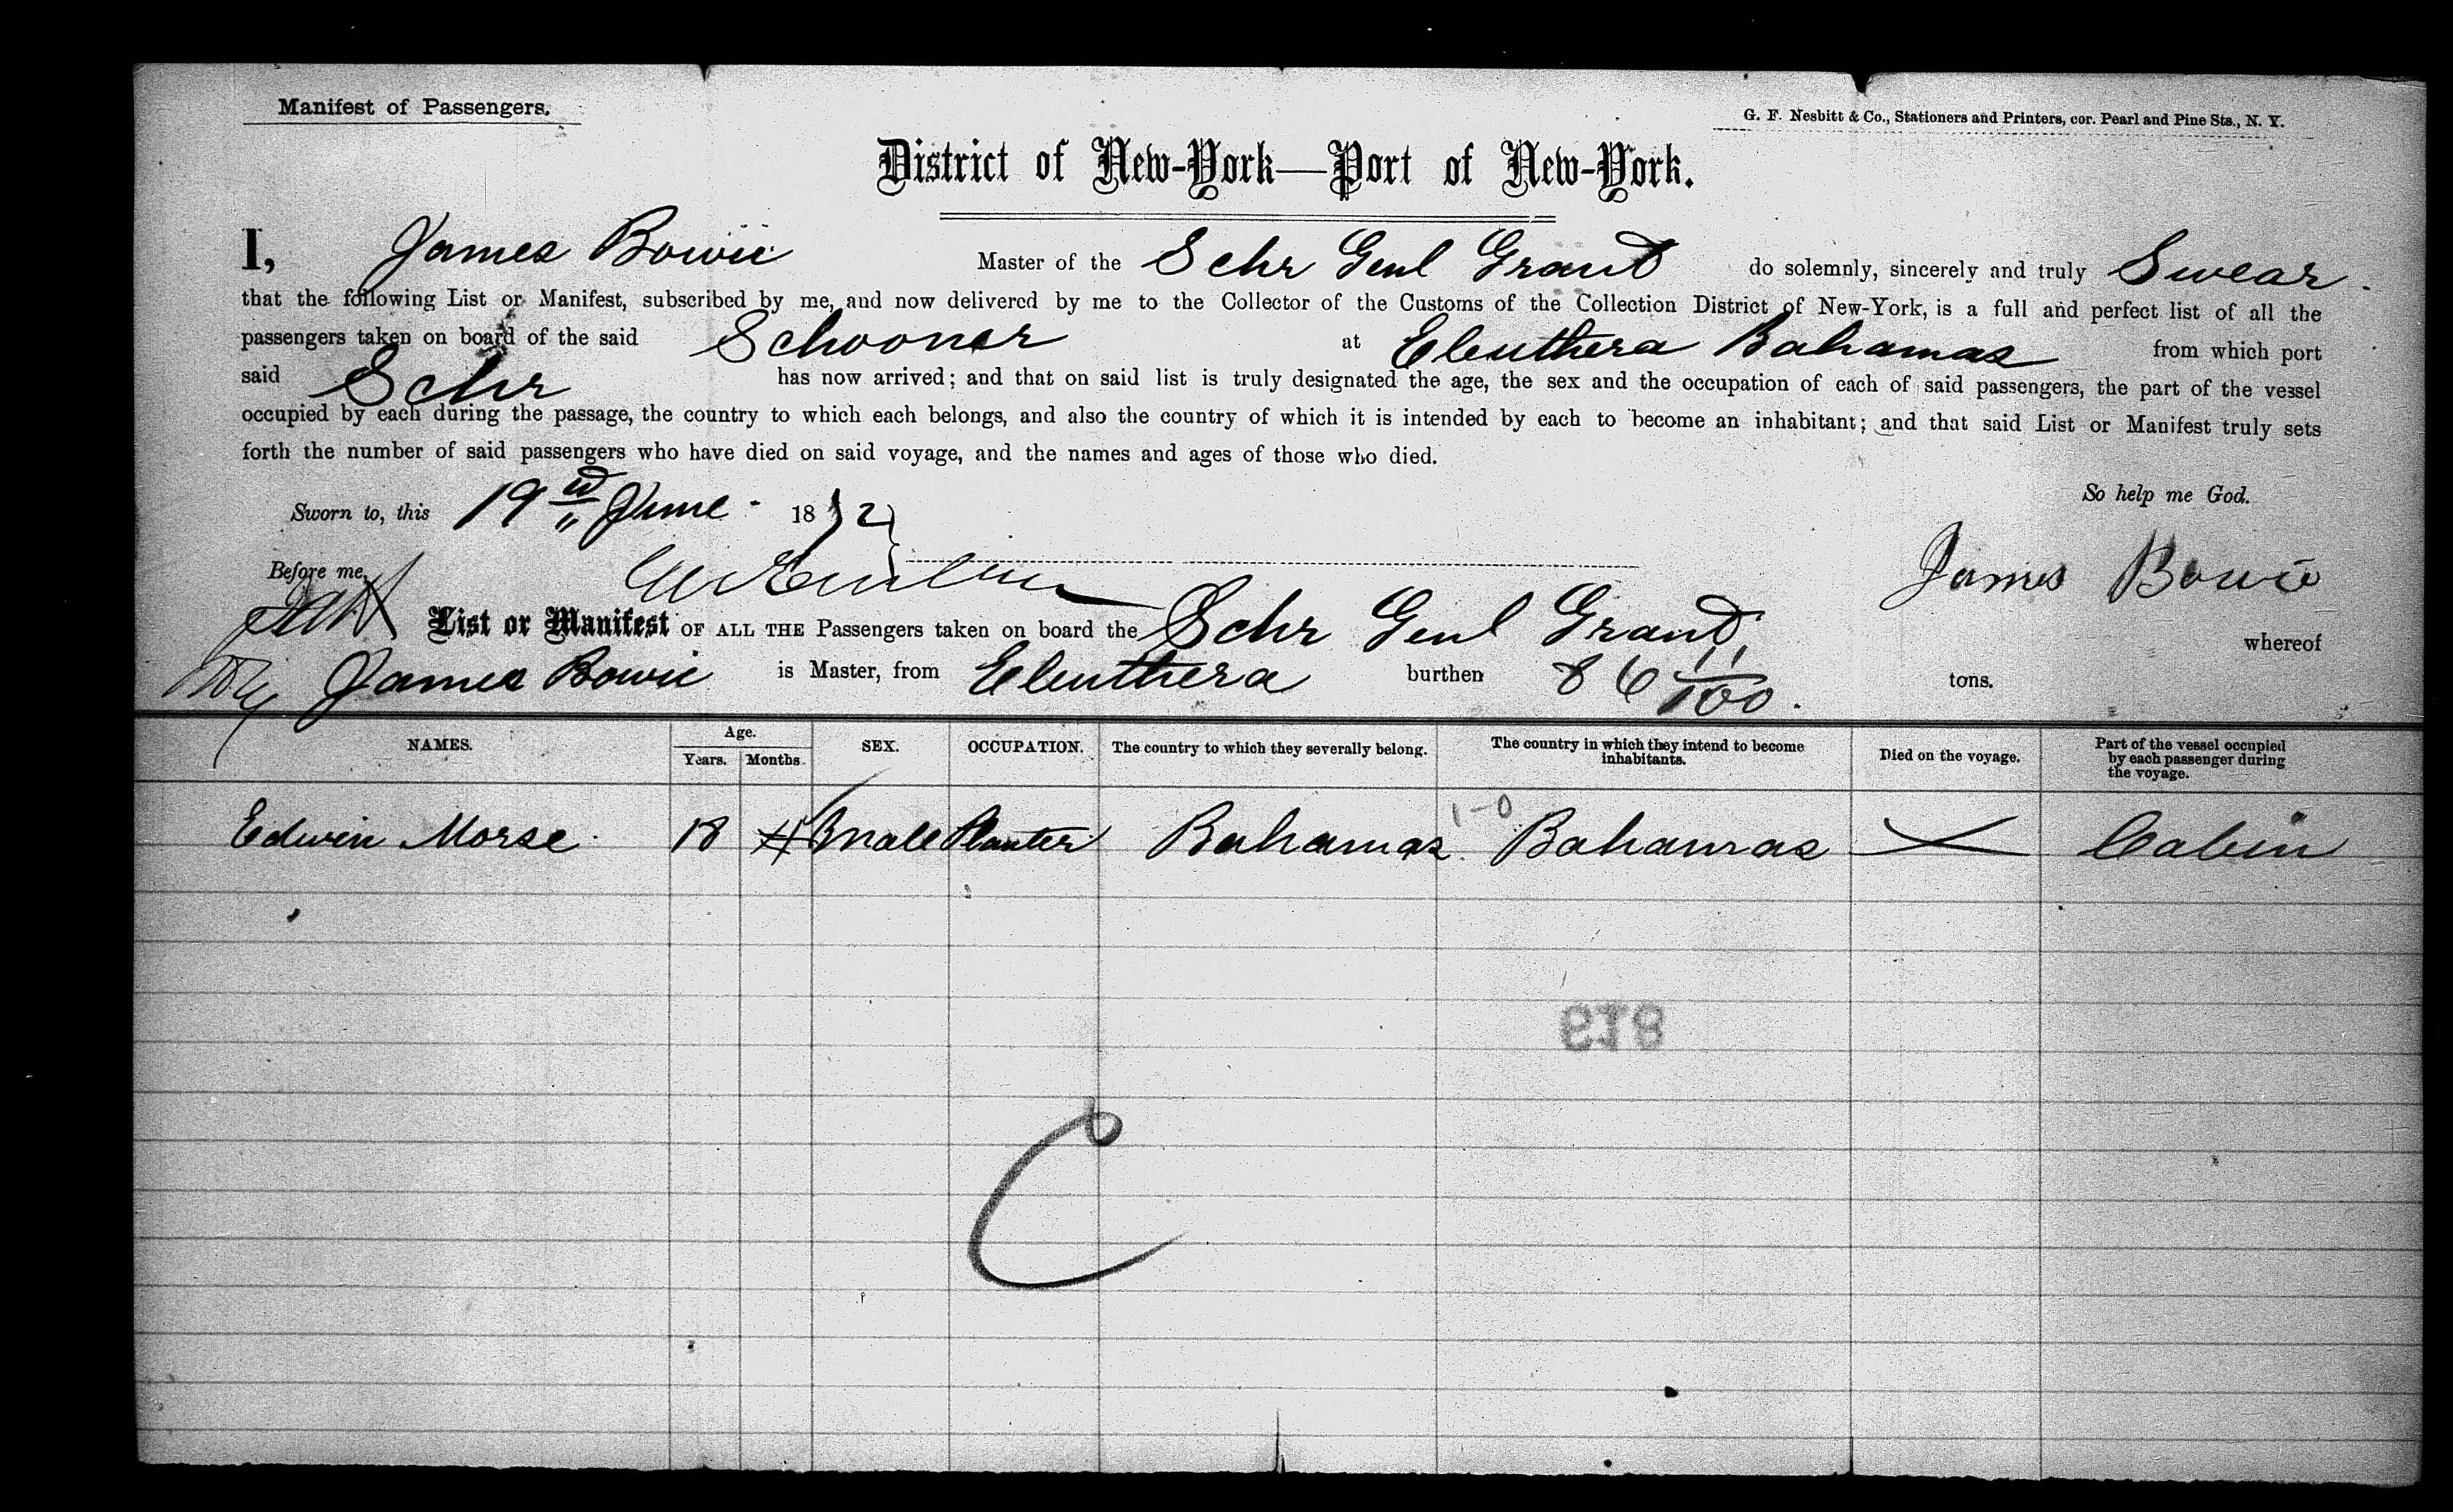 Manifest of Passengers.
G. F. Nesbitt & Co., Stationers and Printers, cor. Pearl and Pine Sts., N. Y.
District of New-York—Port of New-York.
I, James Bowie Master of the Schr Genl Grant do solemnly, sincerely and truly Swear.
that the following List or Manifest, subscribed by me, and now delivered by me to the Collector of the Customs of the Collection District of New-York, is a full and perfect list of all the
passengers taken on board of the said Schooner at Eleuthera Bahamas from which port
said Schr has now arrived; and that on said list is truly designated the age, the sex and the occupation of each of said passengers, the part of the vessel
occupied by each during the passage, the country to which each belongs, and also the country of which it is intended by each to become an inhabitant; and that said List or Manifest truly sets
forth the number of said passengers who have died on said voyage, and the names and ages of those who died.
So help me God.
Sworn to, this 19 June 1872
Before me,
James Bowie
List or Manifest OF ALL THE Passengers taken on board the Schr Genl Grant whereof
James Bowie is Master, from Eleuthera burthen 86 11/100. tons.
NAMES. Age. Years. Months. SEX. OCCUPATION. The country to which they severally belong. The country in which they intend to become inhabitants. Died on the voyage. Part of the vessel occupied by each passenger during the voyage.
Edwin Morse 18 male Planter Bahamas. Bahamas Cabin
1-0
618
C